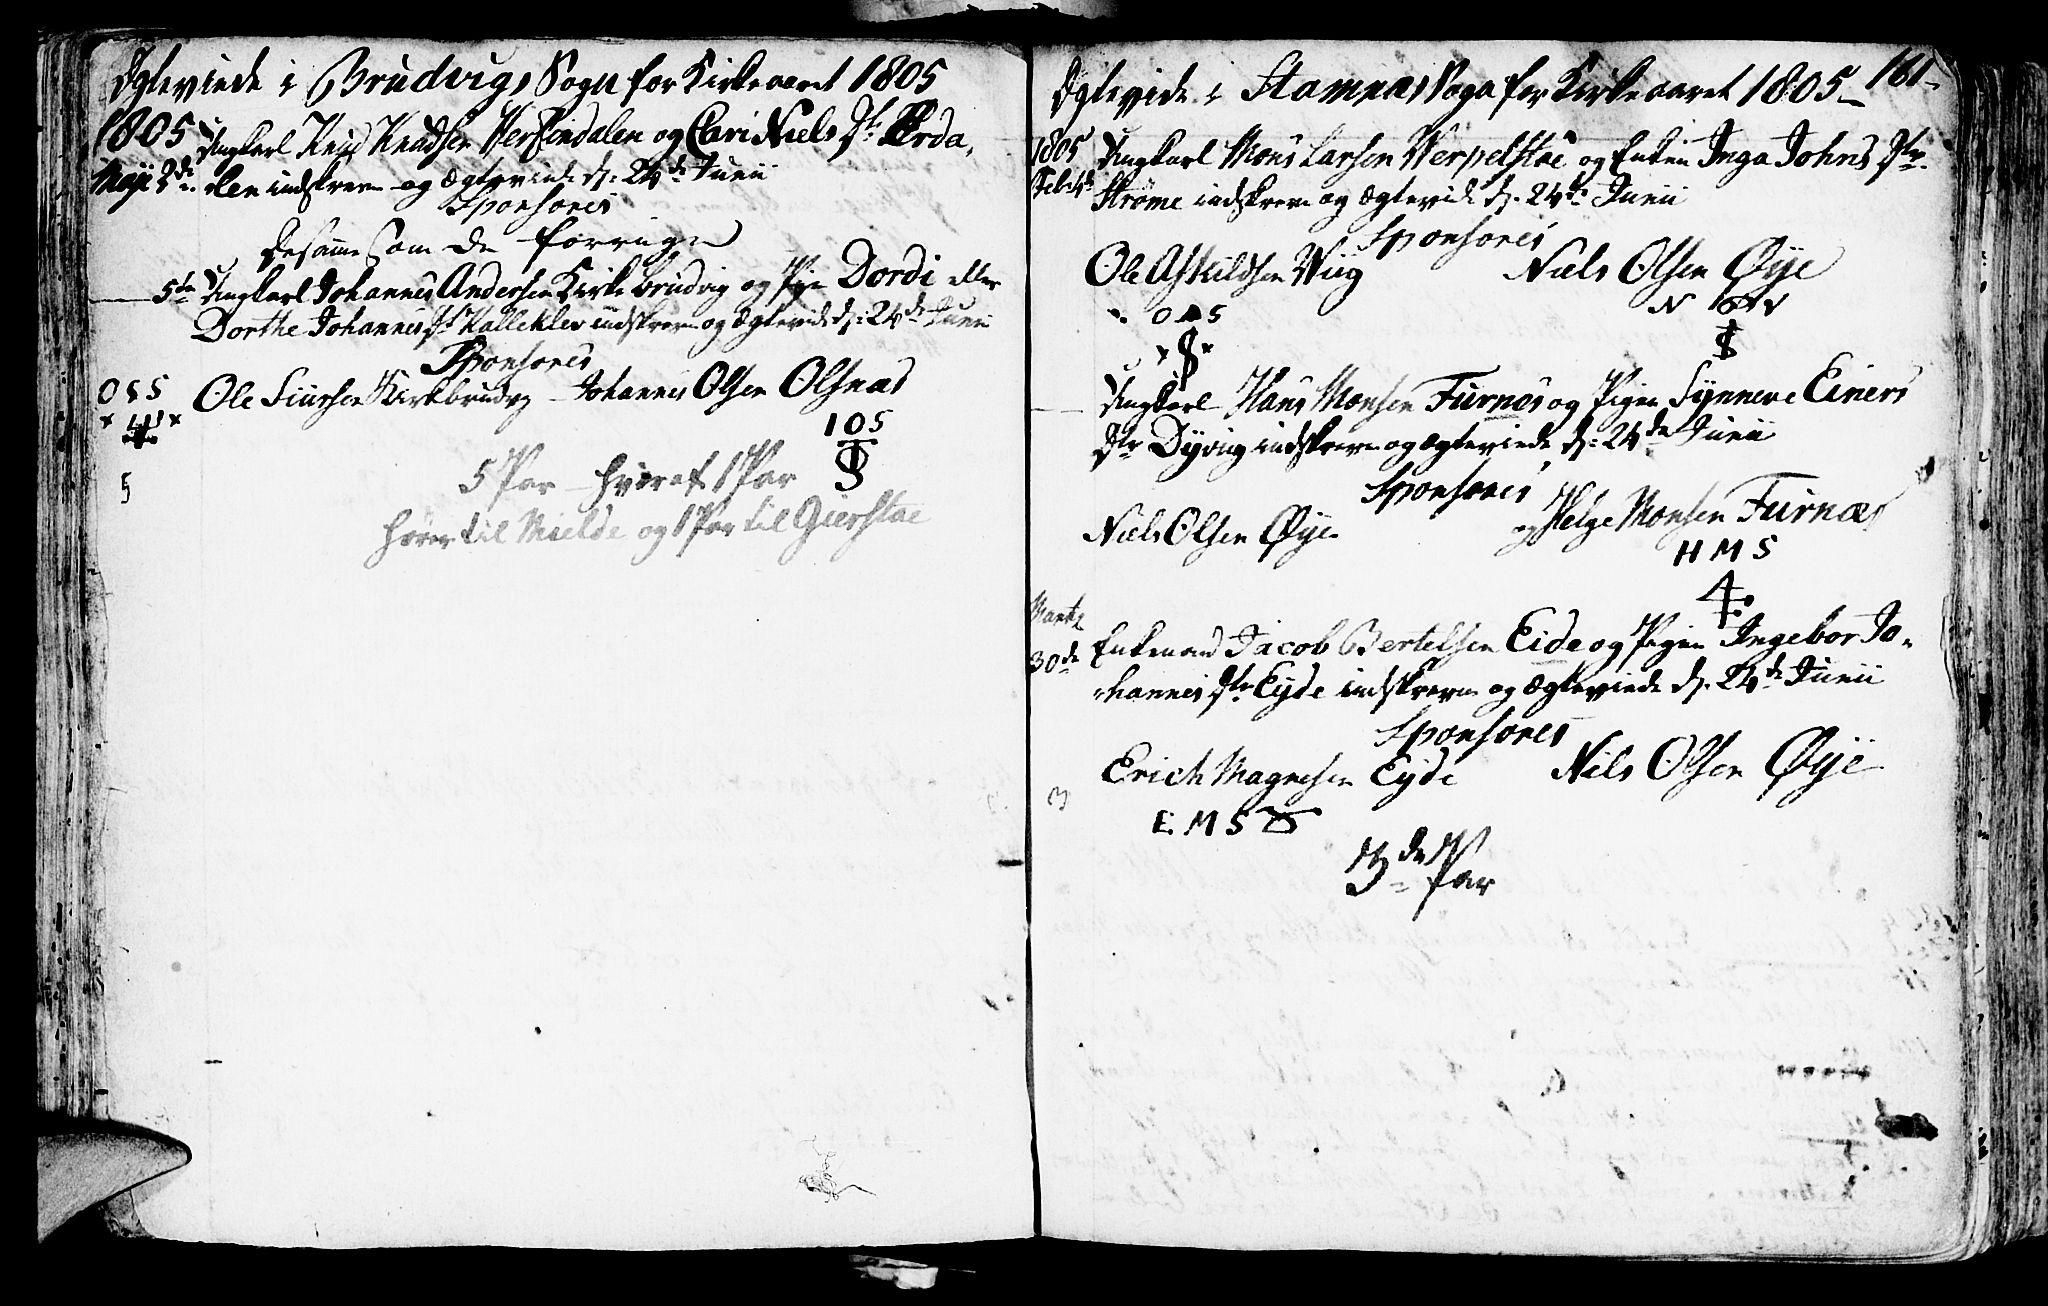 Ægteviede i Brudvigs Sogn for Kirkeaaret 1805
1805 Ungkarl Knud Knudsen Herfindalen og Cari Niels Dtr Ærda,
Maji 2de den indskreven og Ægteviede d: 24de Junii
Sponsores
De samme som de forrige
5te Ungkarl Johannes Andersen Kirkebrudvig og Pige Dordi eller
Dorthe Johannes Dtr Kalleklev indskreven og Ægteviede d: 24de Junii
Sponsores
O S S Ole Siursen Kirkbrudvg - Johannes Olsen Olsnæs
I O S
5 Par - hvoraf 1 Par
5
hører til Mielde og 1 Par til Gierstae
161
Ægtevide i Stamnæs Sogn for Kirkeaaret 1805
1805 Ungkarl Mons Larsen Werpelstae og Enken Inga Johns Dtr
Feb: 4de Strøme indskreven og Ægtevide d. 24de Junii
Sponsores
Ole Askildsen Wiig Niels Olsen Øye
O A S N
Ungkarl Hans Monsen Furnæs og Pigen Synneve Einers
Dtr Dyvig indskreven og Ægteviede d: 24de Junii
Sponsores
Niels Olsen Øye og Helge Monsen Furnæs
H M S
Martz
30de Enkemand Jacob Bertelsen Eide og Pigen Ingebor Jo-
hannes Dtr Eyde indskreven og Ægteviede d. 24de Junii
Sponsores
Erich Magnesen Eyde Niels Olsen Øye
3
E. M S
3de Par